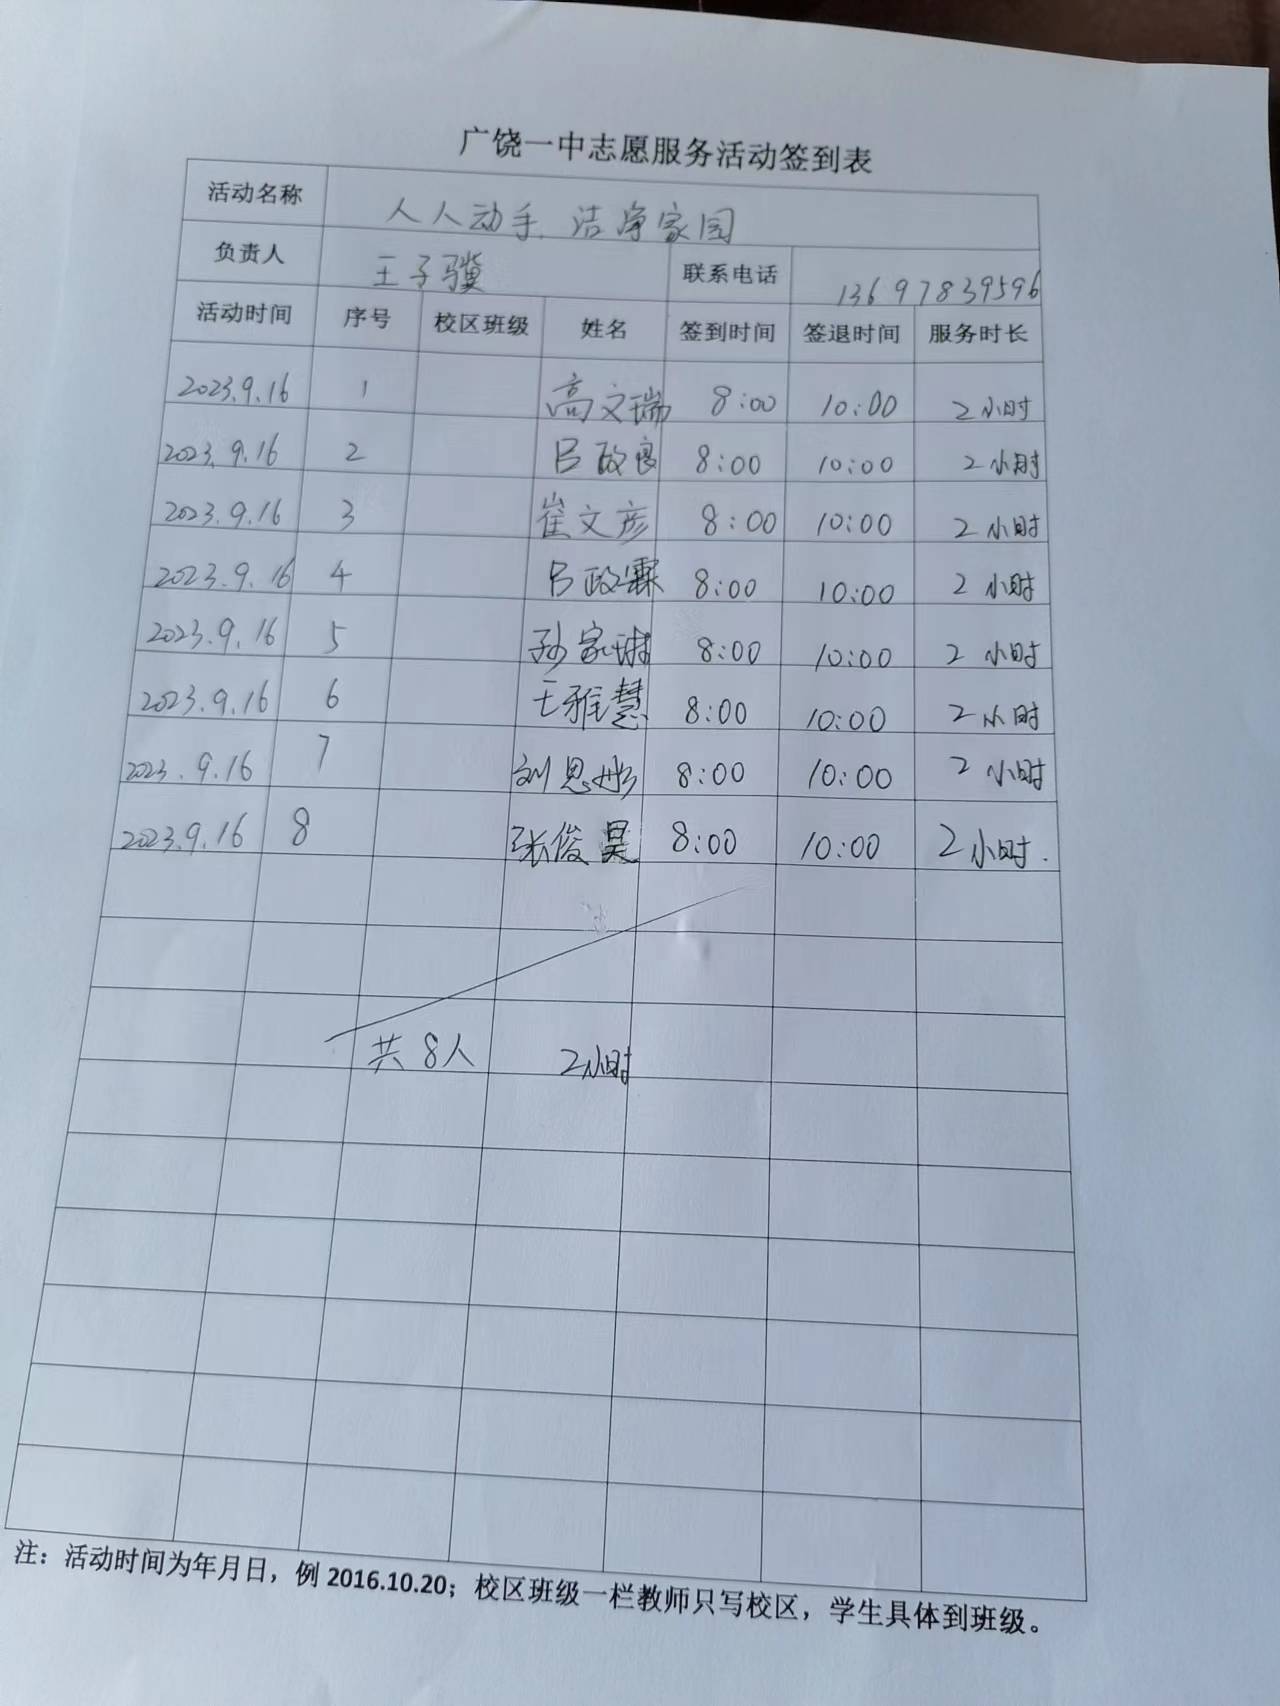 广饶一中志愿服务活动签到表
活动名称 人人动手、洁净家园
负责人 王子骥 联系电话 13697839596
活动时间 序号 校区班级 姓名 签到时间 签退时间 服务时长
2023.9.16 1 高文瑞 8:00 10:00 2小时
2023.9.16 2 吕政良 8:00 10:00 2小时
2023.9.16 3 崔文彦 8:00 10:00 2小时
2023.9.16 4 吕政霖 8:00 10:00 2小时
2023.9.16 5 孙家琳 8:00 10:00 2小时
2023.9.16 6 王雅慧 8:00 10:00 2小时
2023.9.16 7 刘思彤 8:00 10:00 2小时
2023.9.16 8 张俊昊 8:00 10:00 2小时.
共8人 2小时
注：活动时间为年月日，例 2016.10.20；校区班级一栏教师只写校区，学生具体到班级。